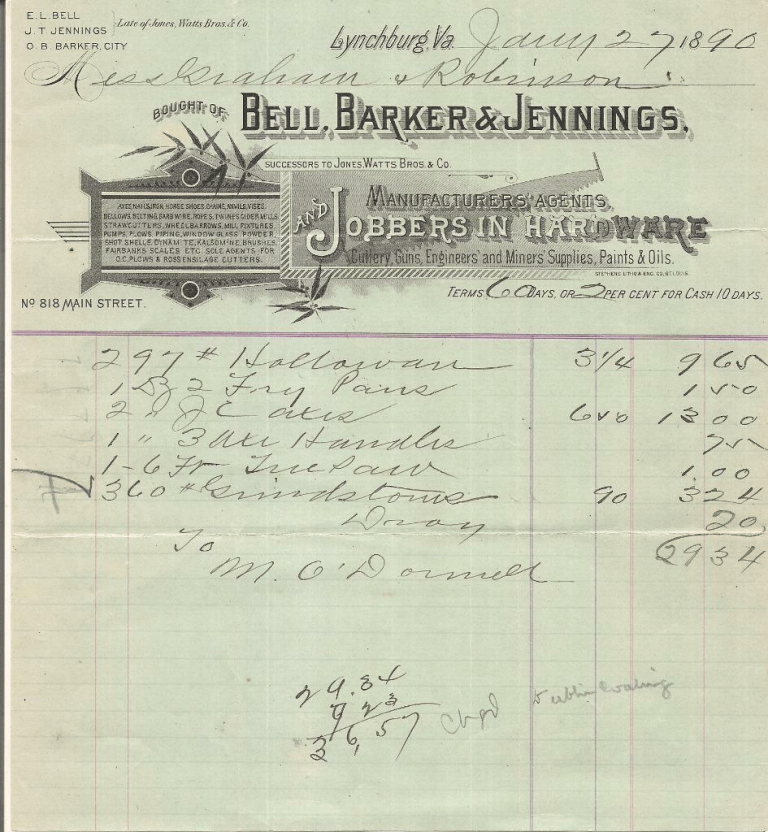 E. L. BELL
J. T. JENNINGS
O. B. BARKER, CITY
Late of Jones, Watts Bros. & Co.
Lynchburg, Va. Jany 27 1890
Mess Graham & Robinson
BOUGHT OF BELL, BARKER & JENNINGS,
SUCCESSORS TO JONES, WATTS BROS. & CO.
AXES, NAILS, IRON, HORSE SHOES, CHAINS, ANVILS, VISES,
BELLOWS, BELTING, BARB WIRE, ROPES, TWINES, CIDER MILLS,
STRAWCUTTERS, WHEELBARROWS, MILL FIXTURES,
PUMPS, PLOWS, PIPING, WINDOW GLASS, POWDER,
SHOT SHELLS, DYNAMITE, KALSOMINE, BRUSHES,
FAIRBANKS SCALES ETC. SOLE AGENTS FOR
O.C. PLOWS & ROSS ENSILAGE CUTTERS.
MANUFACTURERS' AGENTS,
AND JOBBERS IN HARDWARE
Cutlery, Guns, Engineers' and Miners' Supplies, Paints & Oils.
No 818 MAIN STREET.
TERMS 60 DAYS, OR 2 PER CENT FOR CASH 10 DAYS.
297 # Hollowar 3 1/4 9 65
1 Dz 2 Fry Pans 1 50
2 " J C axes 6 50 13 00
1 " 3 Axe Handles 75
1 - 6 Ft Tree Saw 1.00
360 # Grindstones 90 3 24
Dray 20
29 34
To
M. O'Donnell
29.34
7 23
36,57
Chgd